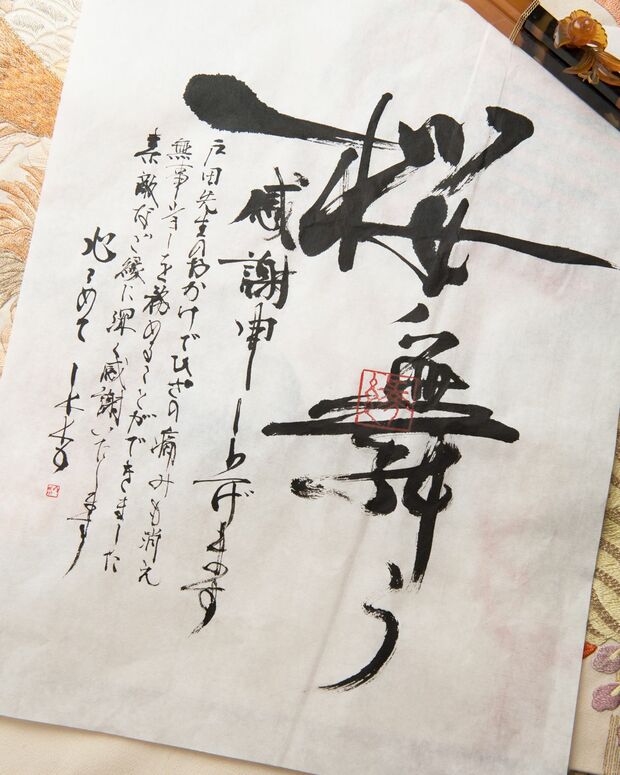 桜舞う
感謝申し上げます
戸田先生のおかげでひざの痛みも消え
無事ショーを務めることができました
素敵なご縁に深く感謝いたします
心こめて